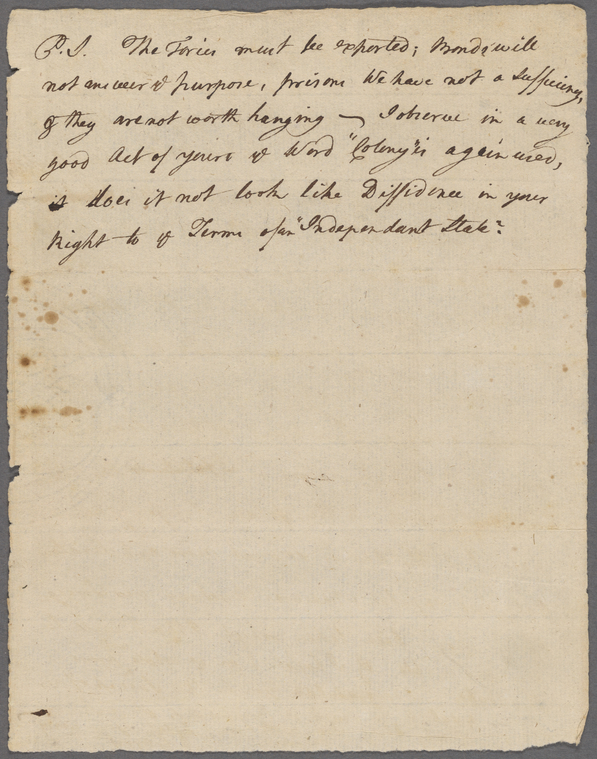 P.S. The Tories must be exported; Bonds will
not answer ye purpose, prisons We have not a sufficiency,
& they are not worth hanging — I observe in a very
good Act of yours ye Word "Colony" is again used,
does it not look like Diffidence in your
Right to ye Terms of an "Independant State"?